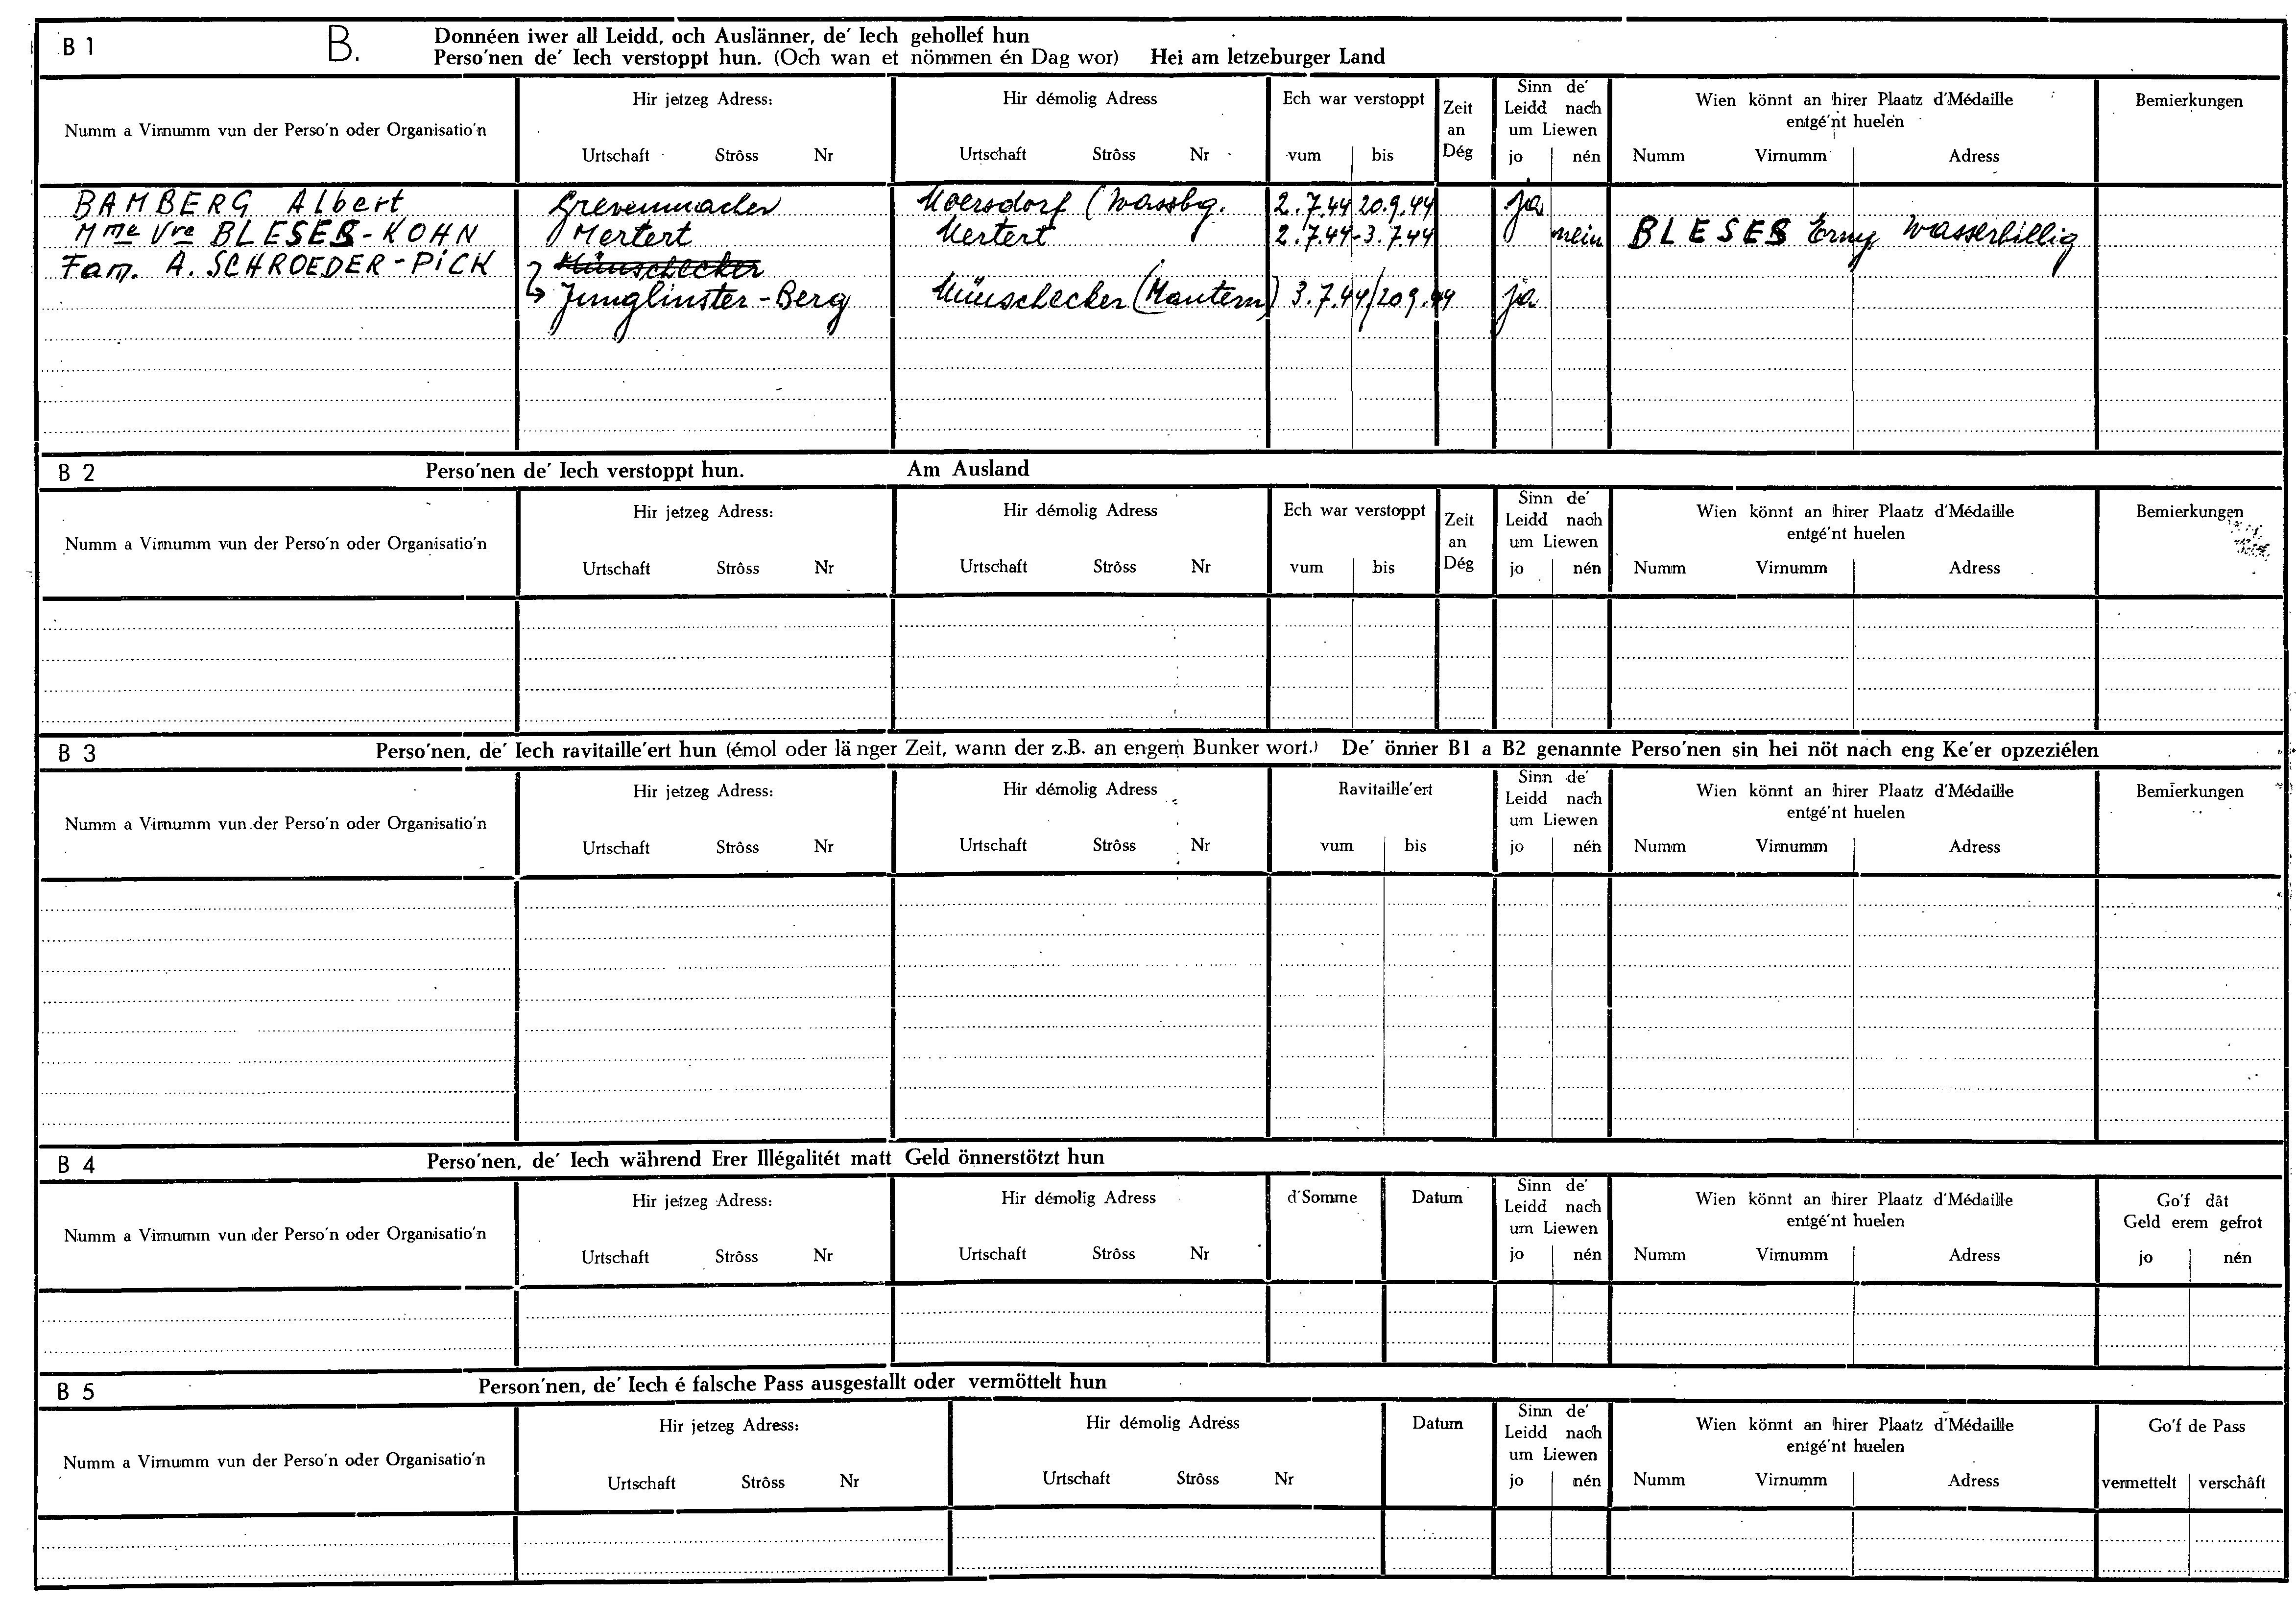 B 1 B. Donnéen iwer all Leidd, och Auslänner, de' Iech gehollef hun
Perso'nen de' Iech verstoppt hun. (Och wan et nömmen én Dag wor) Hei am letzeburger Land
Numm a Virnumm vun der Perso'n oder Organisatio'n
Hir jetzeg Adress:
Urtschaft Strôss Nr
Hir démolig Adress
Urtschaft Strôss Nr
Ech war verstoppt
vum bis
Zeit
an
Dég
Sinn de'
Leidd nach
um Liewen
jo nén
Wien könnt an hirer Plaatz d'Médaille
entgé'nt huelen
Numm Virnumm Adress
Bemierkungen
BAMBERG Albert Grevenmacher Moersdorf (Wassbg. 2.7.44 20.9.44 ja
Mme Vve BLESES-KOHN Mertert Mertert 2.7.44-3.7.44 nein BLESES Erny Wasserbillig
Fam. A. SCHROEDER-PICK Münschecker
↳ Junglinster-Berg Münschecker (Mantern) 3.7.44/20 9.44 ja
B 2 Perso'nen de' Iech verstoppt hun. Am Ausland
Numm a Virnumm vun der Perso'n oder Organisatio'n
Hir jetzeg Adress:
Urtschaft Strôss Nr
Hir démolig Adress
Urtschaft Strôss Nr
Ech war verstoppt
vum bis
Zeit
an
Dég
Sinn de'
Leidd nach
um Liewen
jo nén
Wien könnt an hirer Plaatz d'Médaille
entgé'nt huelen
Numm Virnumm Adress
Bemierkungen
B 3 Perso'nen, de' Iech ravitaille'ert hun (émol oder länger Zeit, wann der z.B. an engem Bunker wort.) De' önner B1 a B2 genannte Perso'nen sin hei nöt nach eng Ke'er opzeziélen
Numm a Virnumm vun der Perso'n oder Organisatio'n
Hir jetzeg Adress:
Urtschaft Strôss Nr
Hir démolig Adress
Urtschaft Strôss Nr
Ravitaille'ert
vum bis
Sinn de'
Leidd nach
um Liewen
jo nén
Wien könnt an hirer Plaatz d'Médaille
entgé'nt huelen
Numm Virnumm Adress
Bemierkungen
B 4 Perso'nen, de' Iech während Erer Illégalitét matt Geld önnerstötzt hun
Numm a Virnumm vun der Perso'n oder Organisatio'n
Hir jetzeg Adress:
Urtschaft Strôss Nr
Hir démolig Adress
Urtschaft Strôss Nr
d'Somme
Datum
Sinn de'
Leidd nach
um Liewen
jo nén
Wien könnt an hirer Plaatz d'Médaille
entgé'nt huelen
Numm Virnumm Adress
Go'f dât
Geld erem gefrot
jo nén
B 5 Person'nen, de' Iech é falsche Pass ausgestallt oder vermöttelt hun
Numm a Virnumm vun der Perso'n oder Organisatio'n
Hir jetzeg Adress:
Urtschaft Strôss Nr
Hir démolig Adress
Urtschaft Strôss Nr
Datum
Sinn de'
Leidd nach
um Liewen
jo nén
Wien könnt an hirer Plaatz d'Médaille
entgé'nt huelen
Numm Virnumm Adress
Go'f de Pass
vermettelt verschâft